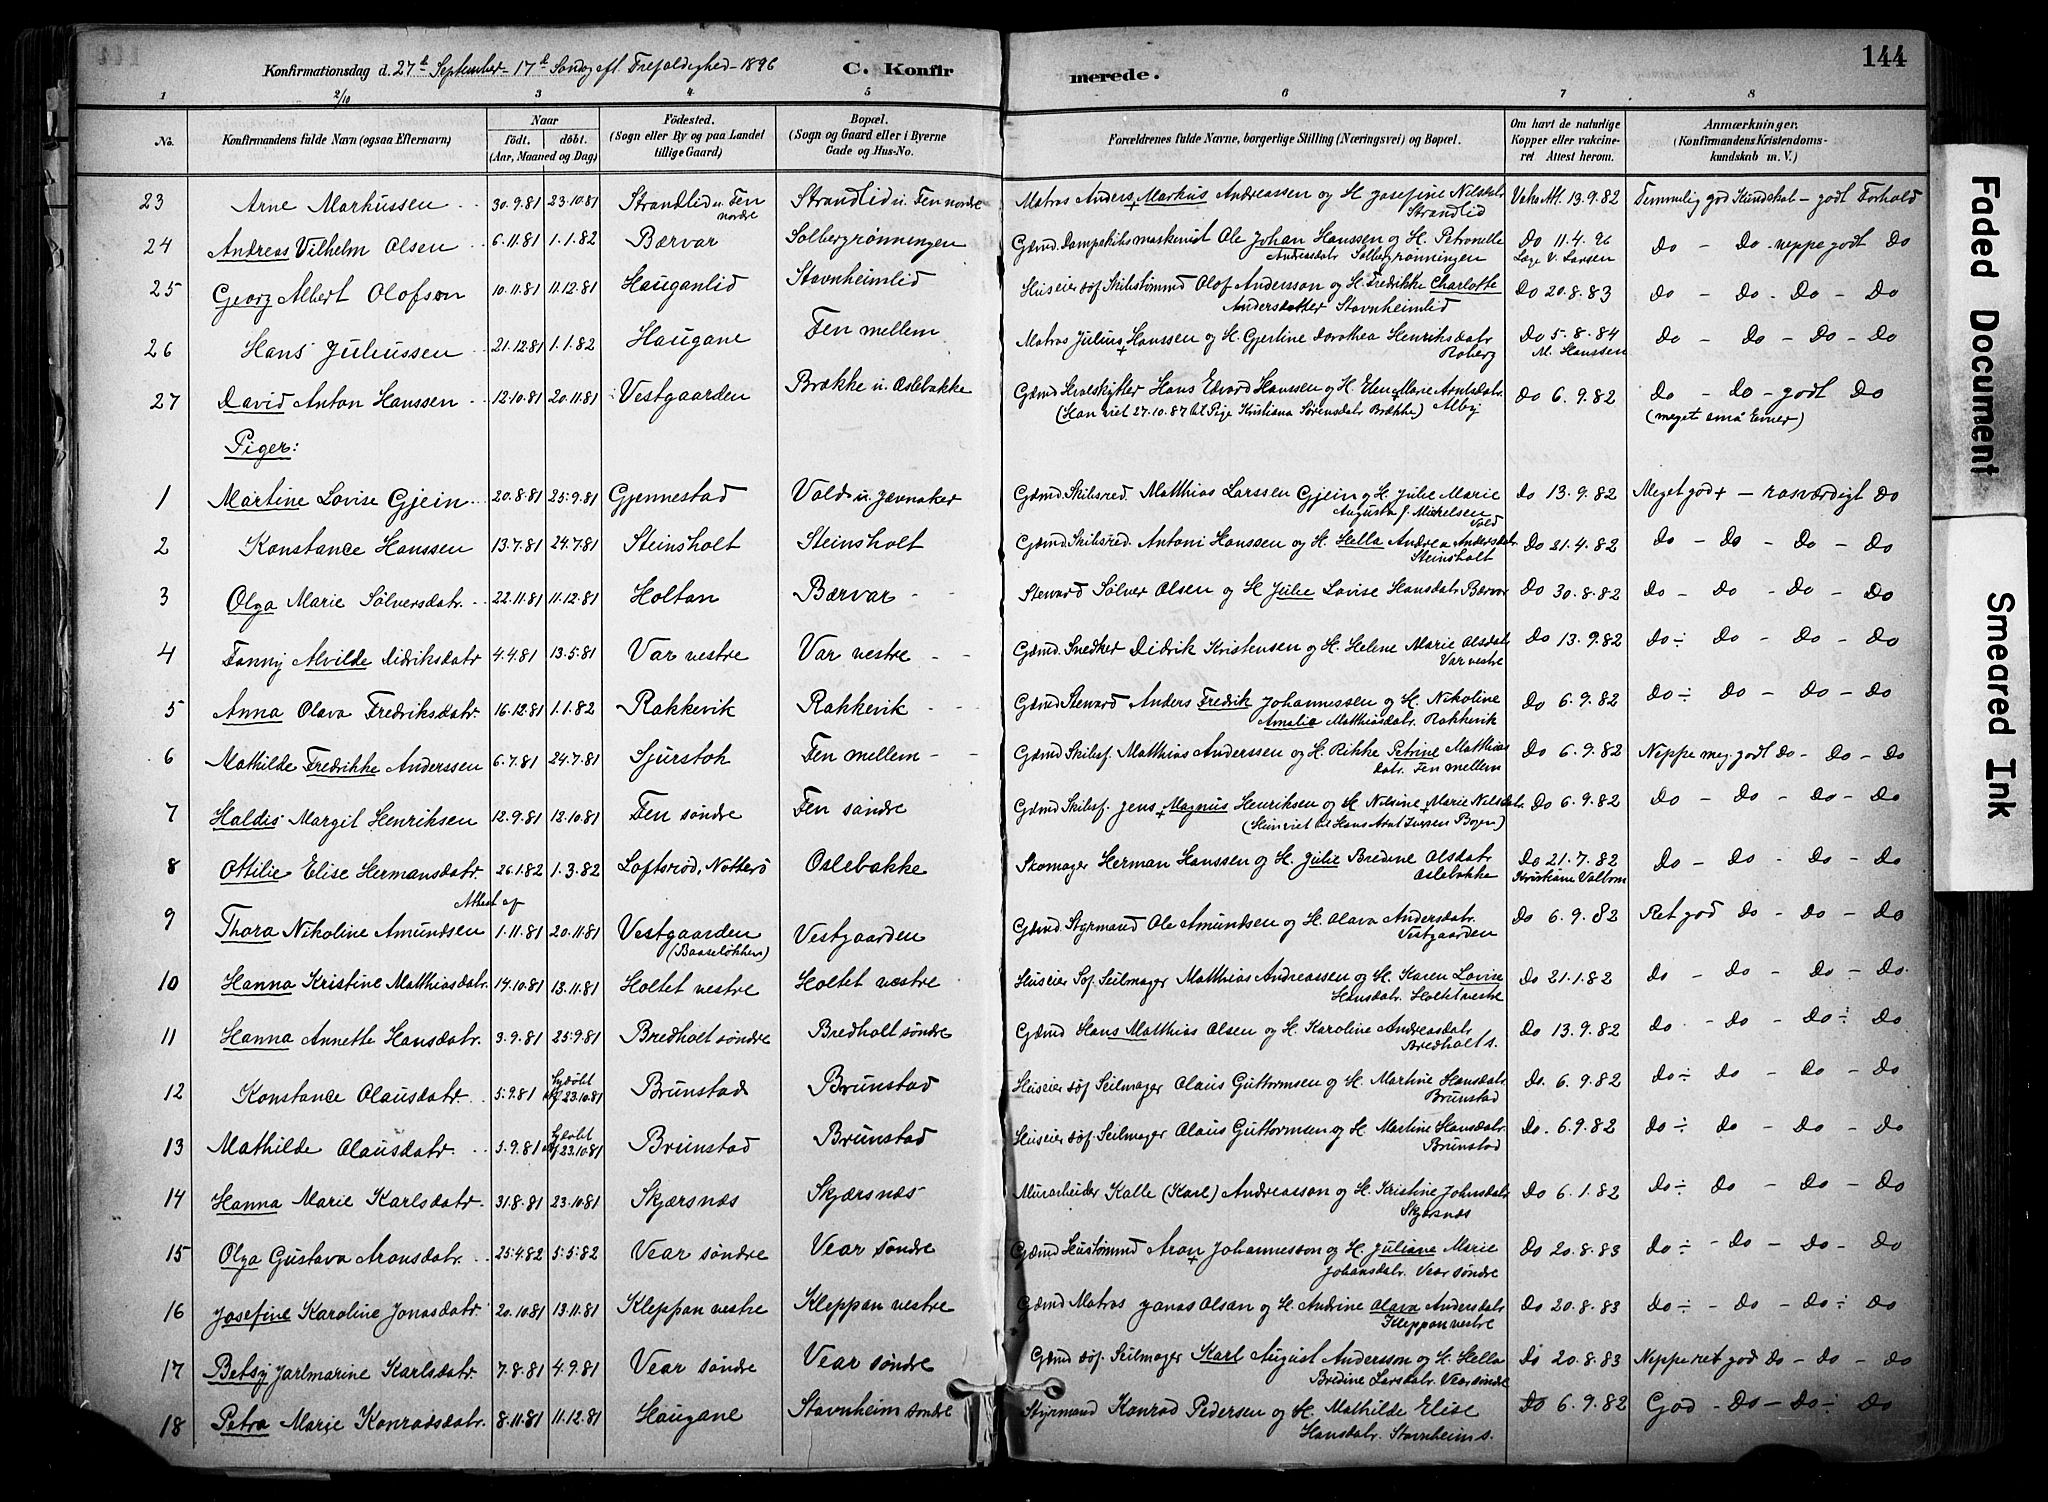 144
Konfirmationsdag d. 27de September 17de Søndag eft. Trefoldighed 1896 C. Konfirmerede.
1 2/10 3 4 5 6 7 8
No. Konfirmandens fulde Navn (ogsaa Efternavn) Naar født. døbt. (Aar, Maaned og Dag) Fødested. (Sogn eller By og paa Landet tillige Gaard) Bopæl. (Sogn og Gaard eller i Byerne Gade og Hus-No. Forældrenes fulde Navne, borgerlige Stilling (Næringsvei) og Bopæl. Om havt de naturlige Kopper eller vakcineret Attest herom. Anmærkninger. (Konfirmandens Kristendomskundskab m. V.)
23 Arne Markussen 30.9.81 23.10.81 Strandlid u. Fen nordre Strandlid u. Fen nordre Matros Anders + Markus Andreassen og H. Josefine Nilsdatr Strandlid Vaks Att. 13.9.82 Temmelig god Kundskab - godt Forhold
24 Andreas Vilhelm Olsen 6.11.81 1.1.82 Bærvar Solbergrønningen Gæmd. Dampskibsmaskinist Ole Johan Hanssen og H. Petronelle Andreasdatr Solbergrønningen Do 11.4.96 Lage V. Larsen Do - Do - neppe godt Do
25 Georg Albert Olofson 10.11.81 11.12.81 Hauganlid Stavnheimlid Huseier søf. Skibstømmd Olof Andersson og H. Fredrikke Charlotte Andersdotter Stavnheimlid Do 20.8.83 Do - Do - Do - Do
26 Hans Juliussen 21.12.81 1.1.82 Haugane Fen mellem Matros Julius + Hanssen og H. Gjertine Dorothea Henriksdatr Roberg Do 5.8.84 M. Hanssen Do - Do - Do - Do
27 David Anton Hanssen 12.10.81 20.11.81 Vestgaarden Brække u. Oslebakke Gæmd Hvalskytter Hans Edvard Hanssen og H. Elen Marie Arntsdatr. (Han viet 27.10.87 til Pige Kristiana Sørensdatr Brække) Alby Do 6.9.82 Do - Do - godt Do (meget små Evner)
Piger:
1 Martine Lovise Gjein 20.8.81 25.9.81 Gjennestad Vold u. Javnaker Gæmd Skibsred. Matthias Larssen Gjein og H. Julie Marie Augusta f. Mikelsen Vold Do 13.9.82 Meget god + - rosværdigt Do
2 Konstance Hanssen 13.7.81 24.7.81 Steinsholt Steinsholt Gæmd Skibsred. Antoni Hanssen og H. Hella Andrea Andersdatr Steinsholt Do 21.4.82 Do - Do - Do - Do
3 Olga Marie Sølversdatr. 22.11.81 11.12.81 Holtan Bærvar Steward Sølver Olsen og H. Julie Lovise Hansdatr Bærvar Do 30.8.82 Do - Do - Do - Do
4 Fanny Alvilde Didriksdatr 4.4.81 13.5.81 Var vestre Var vestre Gæmd. Snedker Didrik Kristensen og H. Helene Marie Olsdatr Var vestre Do 13.9.82 Do ÷ Do - Do - Do
5 Anna Olava Fredriksdatr. 16.12.81 1.1.82 Rakkevik Rakkevik Gæmd Steward Anders Fredrik Johannessen og H. Nikoline Amalie Matthiasdatr. Rakkevik Do 6.9.82 Do ÷ Do - Do - Do
6 Mathilde Fredrikke Anderssen 6.7.81 24.7.81 Sjurstok Fen mellem Gæmd Skibsf. Matthias Anderssen og H. Rikke Petrine Matthiasdatr. Fen mellem Do 6.9.82 Neppe meg godt Do - Do - Do
7 Haldis Margit Henriksen 12.9.81 12.10.81 Fen søndre Fen søndre Gæmd Skibsf. Jens + Magnus Henriksen og H. Nilsine + Marie Nilsdatr. (Hun viet til Hans Arnt Iversen Bogen) Do 6.9.82 Do - Do - Do - Do
8 Ottilie Elise Hermansdatr. 26.1.82 1.3.82 Loftsrød, Nøtterø Oslebakke Skomager Herman Hanssen og H. Julie Bredine Olsdatr Oslebakke Do 21.7.82 Kristiane Valbom Do - Do - Do - Do
Attest af
9 Thora Nikoline Amundsen 1.11.81 20.11.81 Vestgaarden (Baaseløkken) Vestgaarden Gæmd. Styrmand Ole Amundsen og H. Olava Andersdatr. Vestgaarden Do 6.9.82 Ret god Do - Do - Do
10 Hanna Kristine Matthiasdatr. 14.10.81 13.11.81 Holtet vestre Holtet vestre Huseier Søf. Seilmager Matthias Andreassen og H. Karen Lovise Hansdatr. Holtet vestre Do 21.1.82 Do - Do - Do - Do
11 Hanna Annette Hansdatr. 3.9.81 25.9.81 Bredholt søndre Bredholt søndre Gæmd Hans Matthias Olsen og H. Karoline Andreasdatr. Bredholt s. Do 13.9.82 Do - Do - Do ÷ Do
12 Konstance Olausdatr. 5.9.81 hjdøbt 23.10.81 Brunstad Brunstad Huseier søf Seilmager Olaus Guttormsen og H. Martine Hansdatr. Brunstad Do. 6.9.82 Do ÷ Do - Do - Do
13 Mathilde Olausdatr. 5.9.81 hjdøbt 23.10.81 Brunstad Brunstad Huseier søf Seilmager Olaus Guttormsen og H. Martine Hansdatr. Brunstad Do. 6.9.82 Do ÷ Do - Do - Do
14 Hanna Marie Karlsdatr. 31.8.81 23.10.81 Skjærsnæs Skjærsnæs Murarbeider Kalle (Karl) Andreasson og H. Kristine Johnsdatr Skjærsnæs Do 6.1.82 Do ÷ Do - Do - Do
15 Olga Gustava Aronsdatr. 25.4.82 5.5.82 Vear søndre Vear søndre Gæmd Hustømmd Aron + Johannesson og H. Juliane Marie Johansdatr. Vear søndre Do 20.8.83 Do ÷ - Do - Do - Do
16 Josefine Karoline Jonasdatr. 20.10.81 13.11.81 Kleppan vestre Kleppan vestre Gæmd Matros Jonas Olsan og H. Andrine Olava Andersdatr Kleppan vestre Do 20.8.83 Do ÷ - Do - Do ÷ Do
17 Betsy Jarlmarine Karlsdatr. 7.8.81 4.9.81 Vear søndre Vear søndre Gæmd søf. Seilmager Karl August Andersson og H. Hella Bredine Larsdatr. Vear søndre Do 20.8.83 Neppe ret god Do - Do - Do
18 Petra Marie Konradsdatr. 8.11.81 11.12.81 Haugane Stavnheim søndre Styrmand Konrad Pedersen og H. Mathilde Elise Hansdatr. Stavnheim s. Do 6.9.82 God - Do - Do ÷ Do
Faded Document
Smeared Ink